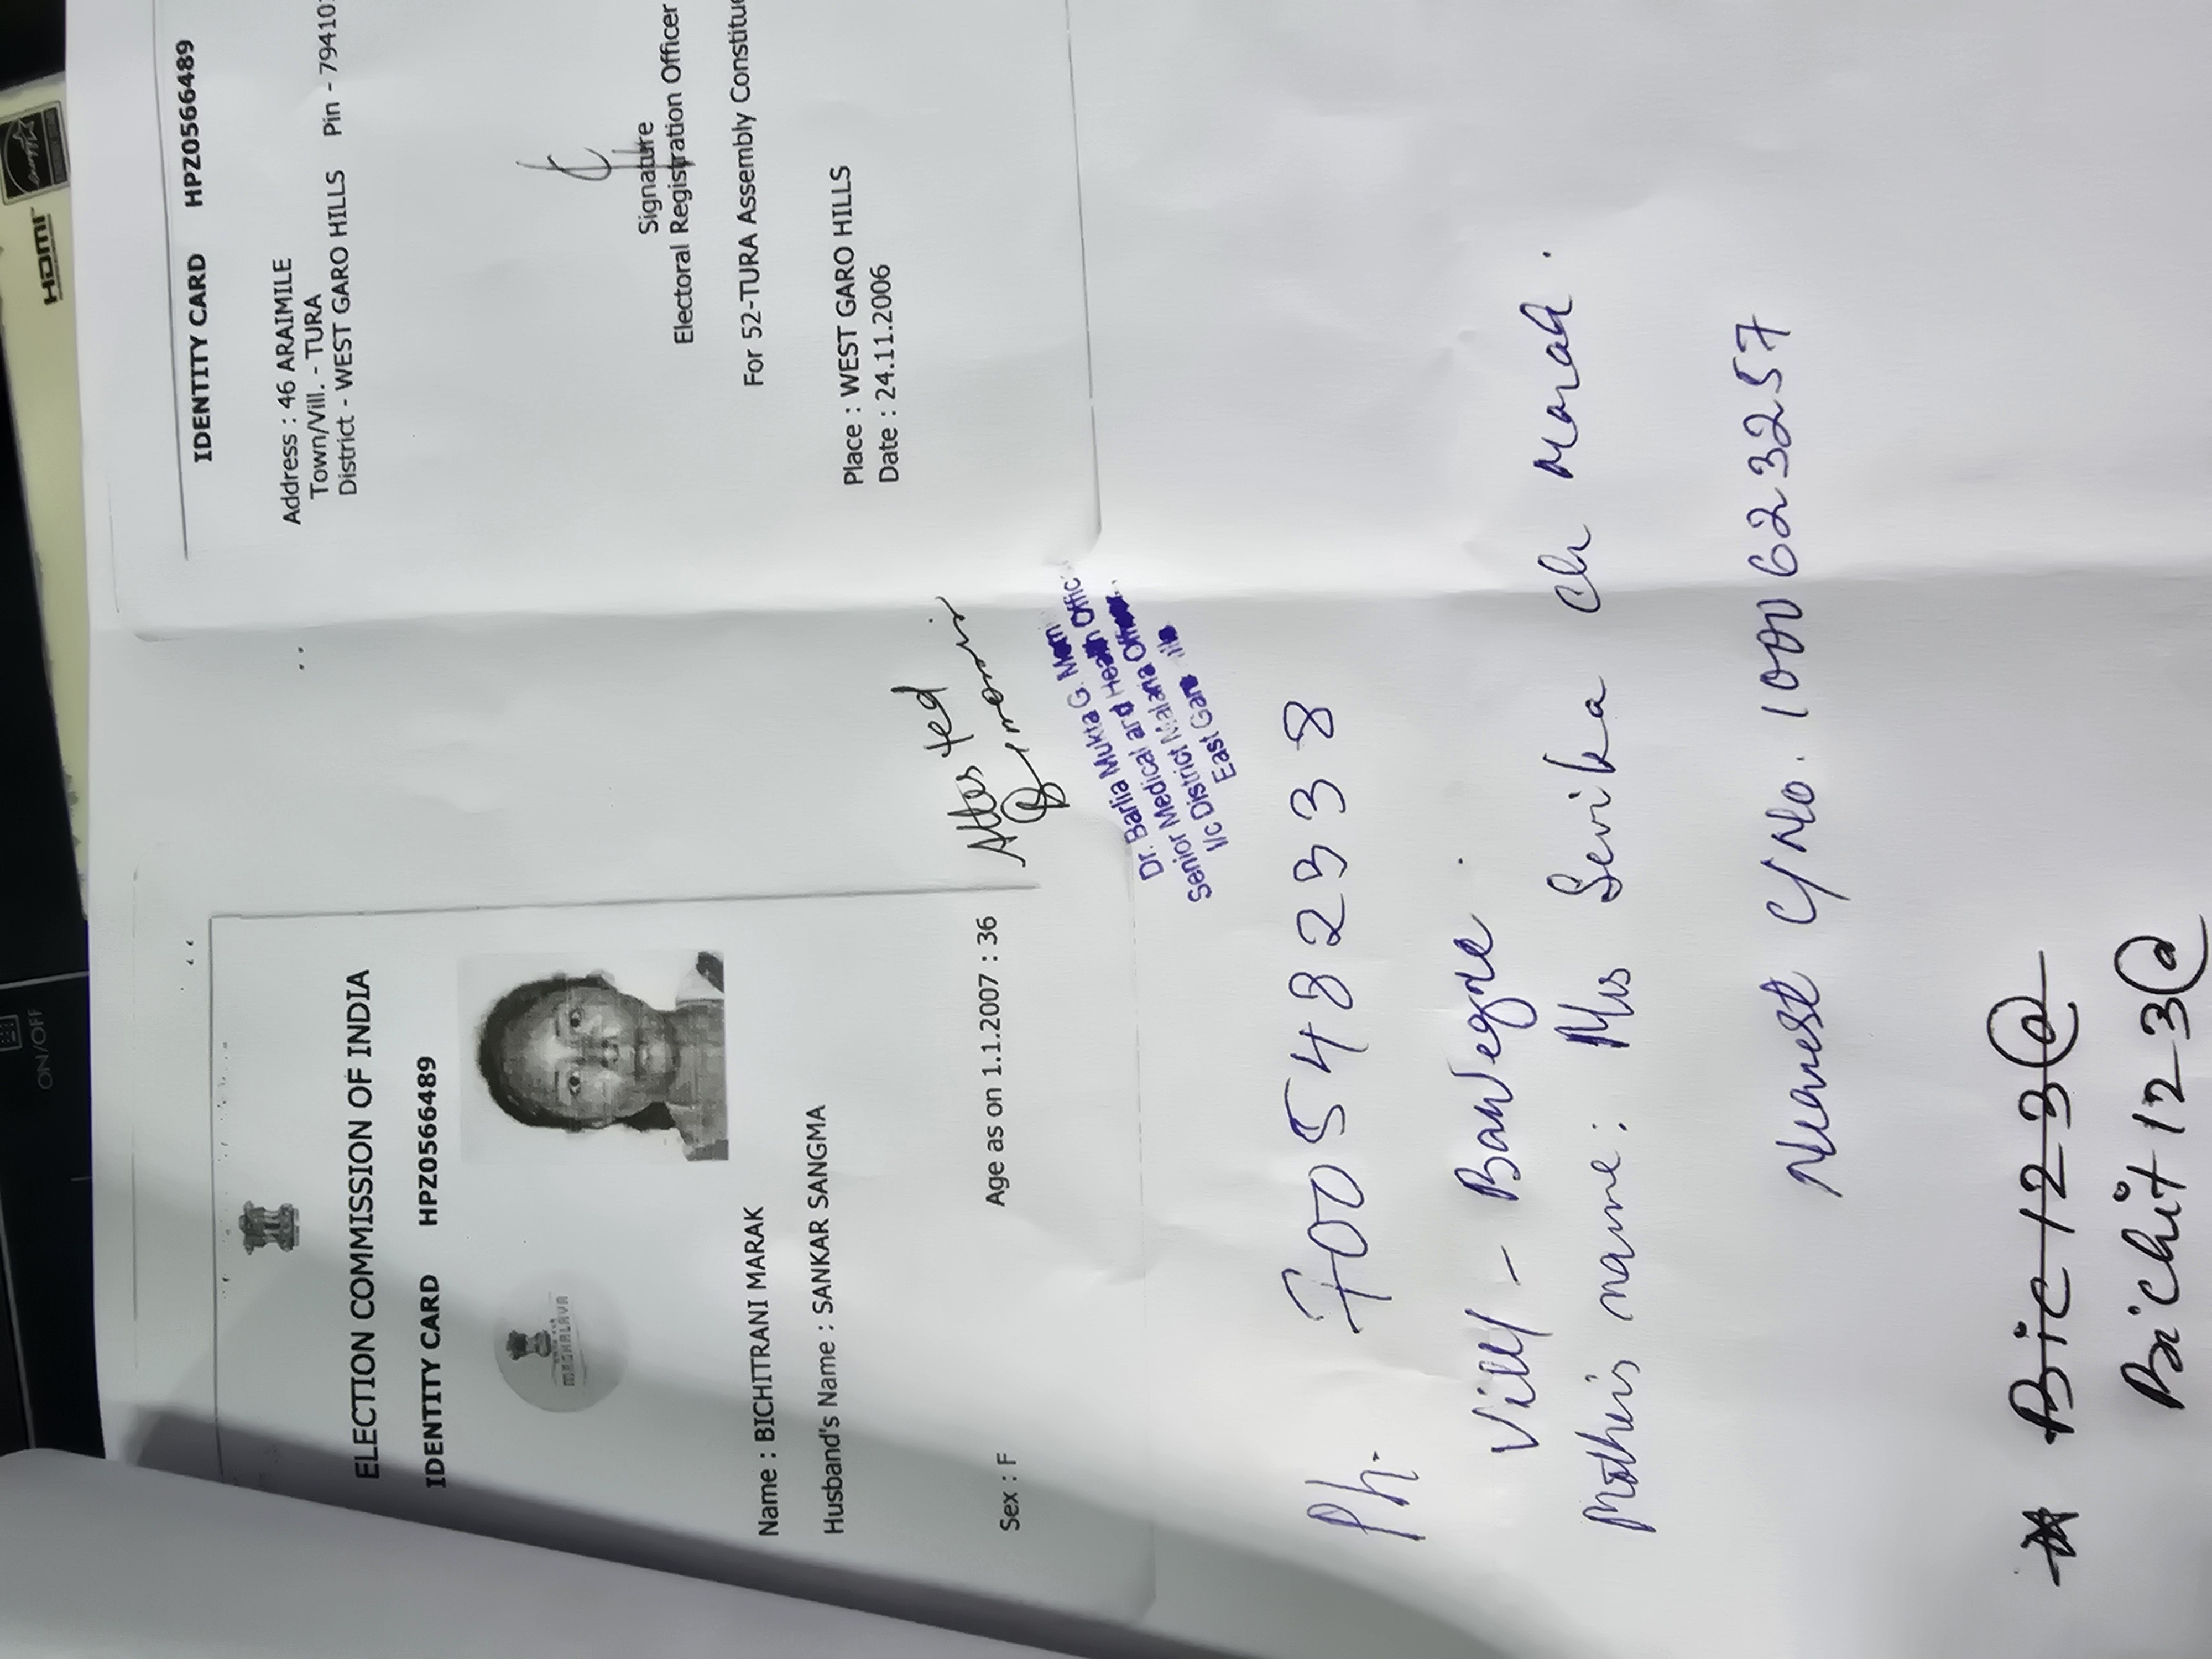 HDMI
ON/OFF
ELECTION COMMISSION OF INDIA
IDENTITY CARD HPZ0566489
Name : BICHITRANI MARAK
Husband's Name : SANKAR SANGMA
Sex : F Age as on 1.1.2007 : 36
IDENTITY CARD HPZ0566489
Address : 46 ARAIMILE
Town/Vill. - TURA
District - WEST GARO HILLS Pin - 79410
Signature
Electoral Registration Officer
For 52-TURA Assembly
Place : WEST GARO HILLS
Date : 24.11.2006
Attested
Dr. Barlia Mukta G.
Senior Medical and Health
I/c District Malaria
East
Ph. 7005482338
Vill/ -
Mother's name : Mrs Sevika Ch Marak.
Nearest C/No. 1000623257
Bic 123@
Bichit 123@